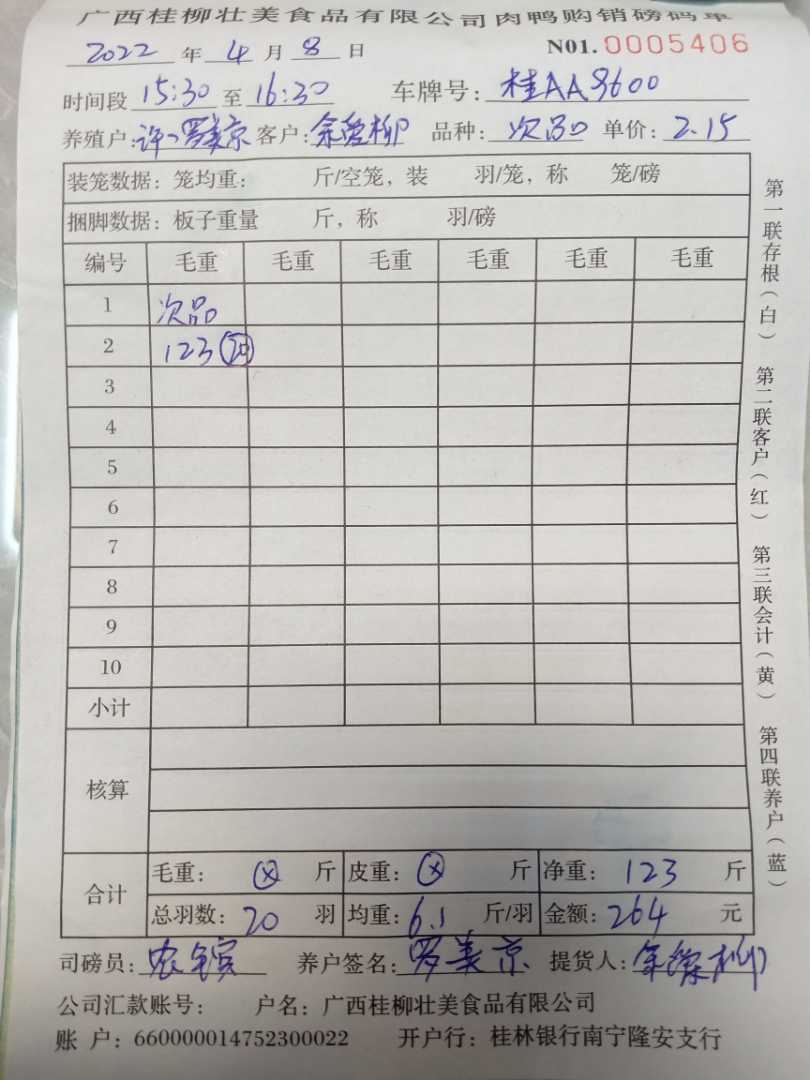 广西桂柳壮美食品有限公司肉鸭购销磅码单
2022 年 4 月 8 日 N01. 0005406
时间段 15:30 至 16:30 车牌号: 桂AA8600
养殖户: 罗美京 客户: 余 柳 品种: 次品 单价: 2.15
装笼数据: 笼均重: 斤/空笼, 装 羽/笼, 称 笼/磅
捆脚数据: 板子重量 斤, 称 羽/磅
编号 毛重 毛重 毛重 毛重 毛重 毛重
1 次品
2 123 20
3
4
5
6
7
8
9
10
小计
核算
合计 毛重: ⊗ 斤 皮重: ⊗ 斤 净重: 123 斤
总羽数: 20 羽 均重: 6.1 斤/羽 金额: 264 元
司磅员: 农 养户签名: 罗美京 提货人: 余 柳
公司汇款账号: 户名: 广西桂柳壮美食品有限公司
账 户: 660000014752300022 开户行: 桂林银行南宁隆安支行
第一联存根(白) 第二联客户(红) 第三联会计(黄) 第四联养户(蓝)